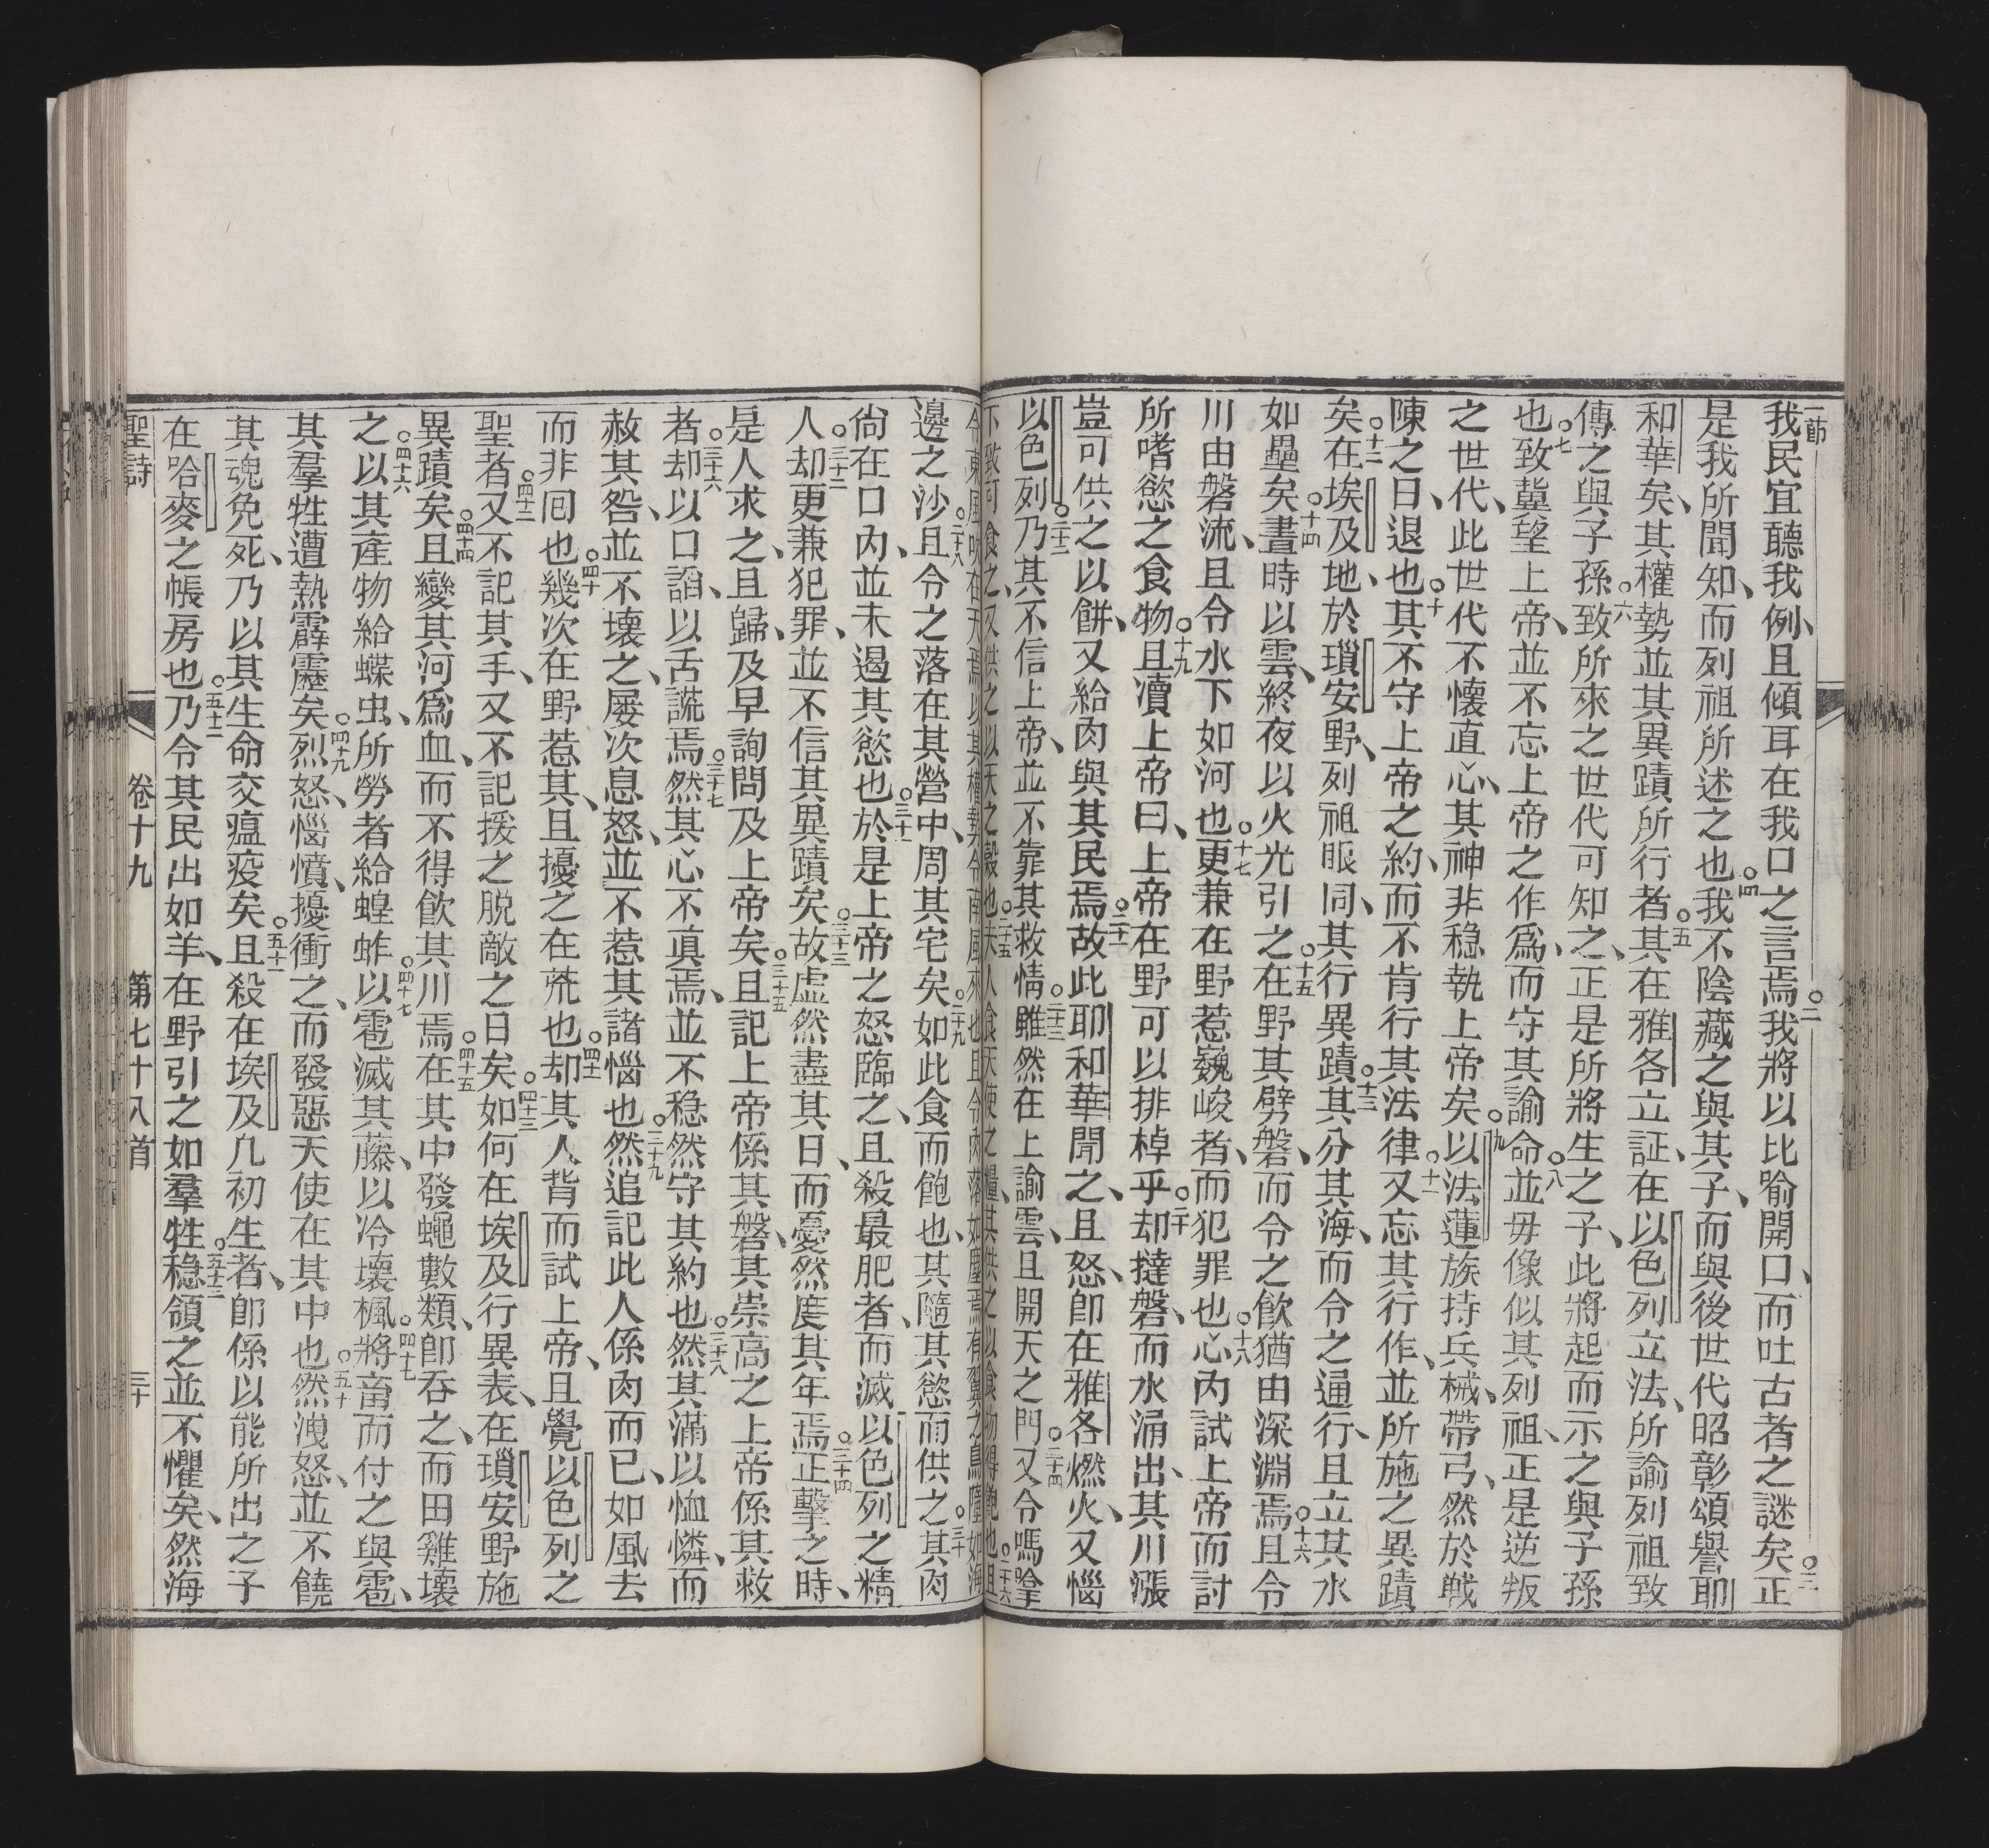 一節
我民宜聽我例、且傾耳在我口之言焉○二我將以比喻開口、而吐古者之謎矣○三正
是我所聞知、而列祖所述之也○四我不陰藏之與其子、而與後世代昭彰頌譽耶
和華矣、其權勢並其異蹟所行者○五其在雅各立証、在以色列立法、所諭列祖致
傳之與子孫○六致所來之世代可知之、正是所將生之子、此將起而示之與子孫
也○七致冀望上帝、並不忘上帝之作爲、而守其諭命○八並毋像似其列祖、正是逆叛
之世代、此世代不懷直心、其神非稳執上帝矣○九以法蓮族持兵械、帶弓、然於戰
陳之日、退也○十其不守上帝之約、而不肯行其法律○十一又忘其行作、並所施之異蹟
矣○十二在埃及地、於瑣安野、列祖眼同、其行異蹟○十三其分其海、而令之通行、且立其水
如壘矣○十四晝時以雲、終夜以火光引之○十五在野其劈磐、而令之飲猶由深淵焉○十六且令
川由磐流、且令水下如河也○十七更兼在野惹巍峻者、而犯罪也○十八心內試上帝而討
所嗜慾之食物○十九且瀆上帝曰、上帝在野可以排棹乎○二十却撻磐、而水涌出、其川漲
豈可供之以餅、又給肉與其民焉○二十一故此耶和華聞之、且怒、卽在雅各燃火、又惱
以色列○二十二乃其不信上帝、並不靠其救情○二十三雖然在上諭雲、且開天之門○二十四又令嗎拿
下致可食之、又供之以天之穀也○二十五夫人食天使之糧、其供之以食物得飽也○二十六且
令東風吹在天焉以其權勢令南風來也且令肉落如塵焉有翼之鳥隨如海
邊之沙○二十八且令之落在其營中、周其宅矣○二十九如此食而飽也、其隨其慾而供之○三十其肉
尙在口內、並未遏其慾也○三十一於是上帝之怒臨之、且殺最肥者、而滅以色列之精
人○三十二却更兼犯罪、並不信其異蹟矣○三十三故虛然盡其日、而憂然度其年焉○三十四正擊之時、
是人求之、且歸、及早詢問及上帝矣○三十五且記上帝係其磐、其崇高之上帝係其救
者○三十六却以口謟、以舌謊焉○三十七然其心不眞焉、並不稳然守其約也○三十八然其滿以恤憐、而
赦其咎、並不壞之、屡次息怒、並不惹其諸惱也○三十九然追記此人係肉而已、如風去
而非囘也○四十幾次在野惹其、且擾之在荒也○四十一却其人背而試上帝、且覺以色列之
聖者○四十二又不記其手、又不記援之脱敵之日矣○四十三如何在埃及行異表、在瑣安野施
異蹟矣○四十四且變其河爲血、而不得飲其川焉○四十五在其中發蠅數類、卽吞之、而田雞壞
之○四十六以其產物給蝶虫、所勞者給蝗蚱○四十七以雹滅其藤、以冷壞楓○四十七將畜而付之與雹、
其羣牲遭熱霹靂矣○四十九烈怒、惱憤、擾衝之、而發惡天使在其中也○五十然洩怒、並不饒
其魂免死、乃以其生命交瘟疫矣○五十一且殺在埃及几初生者、卽係以能所出之子
在哈麥之帳房也○五十二乃令其民出如羊、在野引之如羣牲○五十三稳領之並不懼矣、然海
聖詩 卷十九 第七十八首 三十